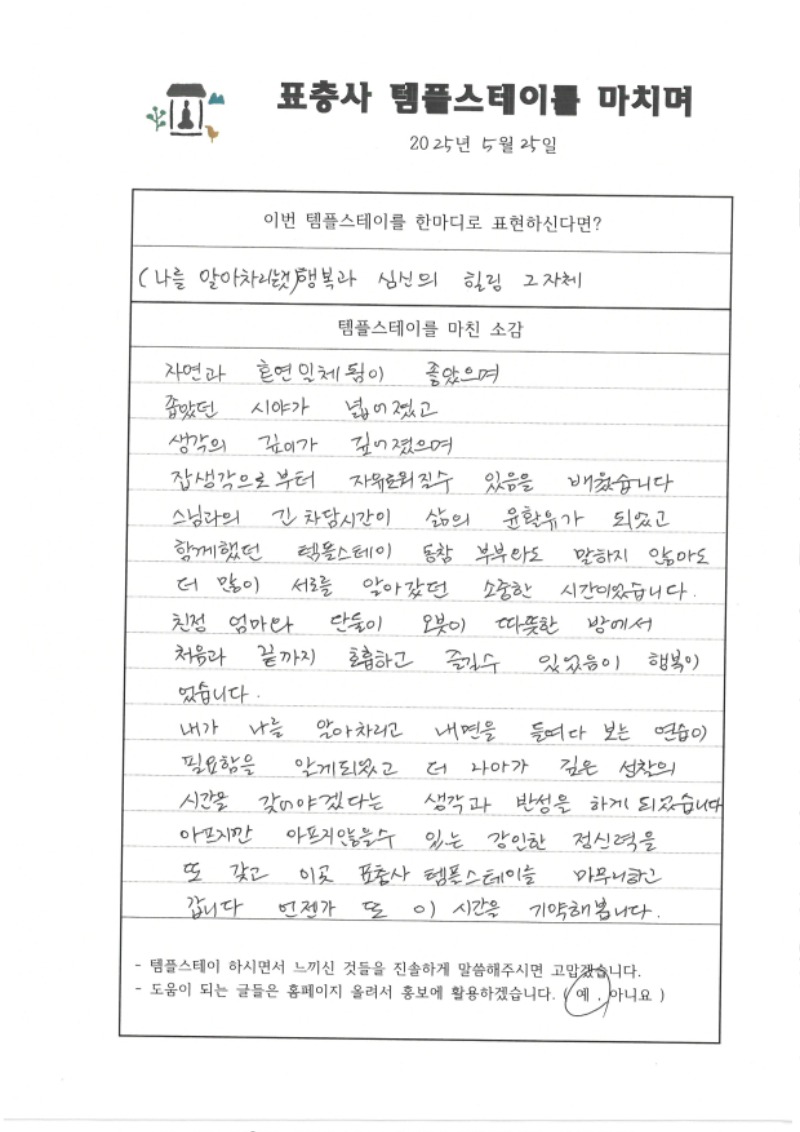 표충사 템플스테이를 마치며
2025년 5월 25일
이번 템플스테이를 한마디로 표현하신다면?
(나를 알아차리는것) 행복과 심신의 힐링 그자체
템플스테이를 마친 소감
자연과 혼연일체됨이 좋았으며
좁았던 시야가 넓어졌고
생각의 깊이가 깊어졌으며
잡생각으로부터 자유로워질수 있음을 배웠습니다
스님과의 긴 차담시간이 삶의 윤활유가 되었고
함께했던 템플스테이 동참 부부와도 말하지 않아도
더 많이 서로를 알아갔던 소중한 시간이었습니다.
친정 엄마와 단둘이 오붓이 따뜻한 방에서
처음과 끝까지 호흡하고 즐길수 있었음이 행복이
었습니다.
내가 나를 알아차리고 내면을 들여다 보는 연습이
필요함을 알게되었고 더 나아가 깊은 성찰의
시간을 갖어야겠다는 생각과 반성을 하게 되었습니다
아프지만 아프지않을수 있는 강인한 정신력을
또 갖고 이곳 표충사 템플스테이를 마무리하고
갑니다 언젠가 또 이 시간을 기약해봅니다.
- 템플스테이 하시면서 느끼신 것들을 진솔하게 말씀해주시면 고맙겠습니다.
- 도움이 되는 글들은 홈페이지 올려서 홍보에 활용하겠습니다. ( 예 , 아니요 )